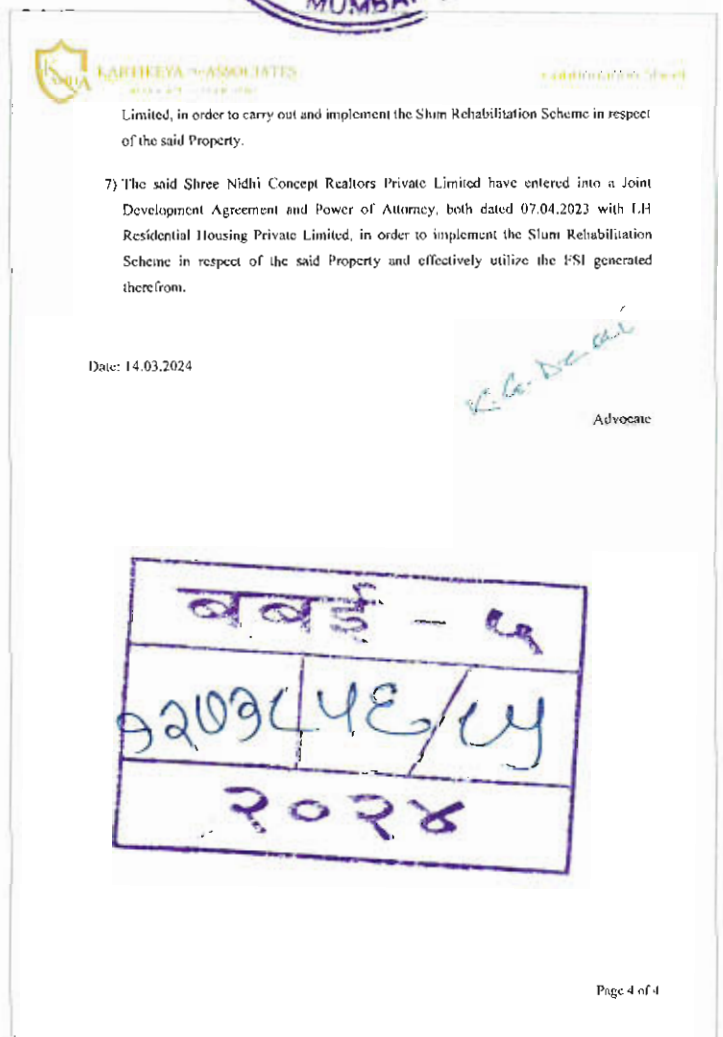 MUMBAI
KARTIKEYA & ASSOCIATES
Continuation Sheet
Limited, in order to carry out and implement the Slum Rehabilitation Scheme in respect
of the said Property.
7) The said Shree Nidhi Concept Realtors Private Limited have entered into a Joint
Development Agreement and Power of Attorney, both dated 07.04.2023 with LH
Residential Housing Private Limited, in order to implement the Slum Rehabilitation
Scheme in respect of the said Property and effectively utilize the FSI generated
therefrom.
Date: 14.03.2024
K. G. Desai
Advocate
बबई - ५
५६/८५
२०२४
Page 4 of 4